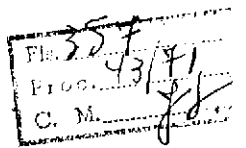 Fls. 357
Proc. 43/71
C. M.